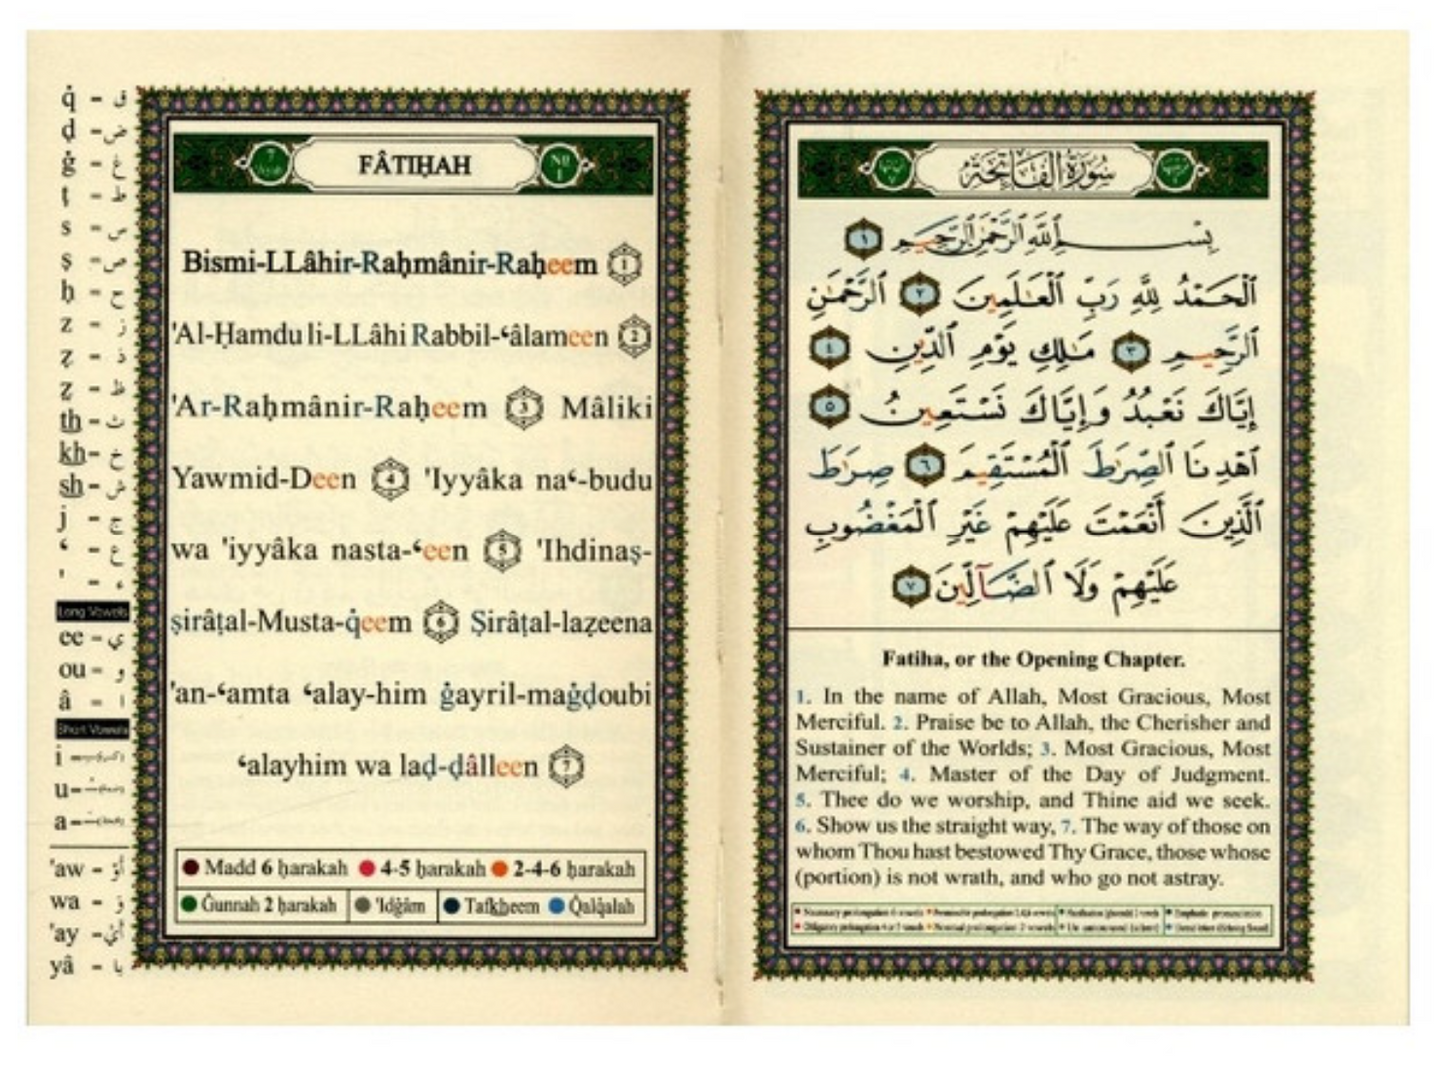 q̇ - ق
ḍ - ض
ġ - غ
ṭ - ط
s - س
ṣ - ص
ḥ - ح
z - ز
ẓ - ذ
ẓ - ظ
th - ث
kh - خ
sh - ش
j - ج
‘ - ع
' - ء
Long Vowels
ee - ي
ou - و
â - ا
Short Vowels
i
u
a
'aw - أَوْ
wa - وَ
'ay - أَيْ
yâ - يا
7
FÂTIḤAH
No
1
Bismi-LLâhir-Raḥmânir-Raḥeem 1
'Al-Ḥamdu li-LLâhi Rabbil-‘âlameen 2
'Ar-Raḥmânir-Raḥeem 3 Mâliki
Yawmid-Deen 4 'Iyyâka na‘-budu
wa 'iyyâka nasta-‘een 5 'Ihdinaṣ-
ṣirâṭal-Musta-q̇eem 6 Ṣirâṭal-laẓeena
'an-‘amta ‘alay-him ġayril-maġḍoubi
‘alayhim wa laḍ-ḍâlleen 7
Madd 6 ḥarakah 4-5 ḥarakah 2-4-6 ḥarakah
Ġunnah 2 ḥarakah 'Idġâm Tafkheem Q̇alq̇alah
سُورَةُ الْفَاتِحَةِ
بِسْمِ ٱللَّهِ ٱلرَّحْمَٰنِ ٱلرَّحِيمِ ١
ٱلْحَمْدُ لِلَّهِ رَبِّ ٱلْعَٰلَمِينَ ٢ ٱلرَّحْمَٰنِ
ٱلرَّحِيمِ ٣ مَٰلِكِ يَوْمِ ٱلدِّينِ ٤
إِيَّاكَ نَعْبُدُ وَإِيَّاكَ نَسْتَعِينُ ٥
ٱهْدِنَا ٱلصِّرَٰطَ ٱلْمُسْتَقِيمَ ٦ صِرَٰطَ
ٱلَّذِينَ أَنْعَمْتَ عَلَيْهِمْ غَيْرِ ٱلْمَغْضُوبِ
عَلَيْهِمْ وَلَا ٱلضَّآلِّينَ ٧
Fatiha, or the Opening Chapter.
1. In the name of Allah, Most Gracious, Most
Merciful. 2. Praise be to Allah, the Cherisher and
Sustainer of the Worlds; 3. Most Gracious, Most
Merciful; 4. Master of the Day of Judgment.
5. Thee do we worship, and Thine aid we seek.
6. Show us the straight way, 7. The way of those on
whom Thou hast bestowed Thy Grace, those whose
(portion) is not wrath, and who go not astray.